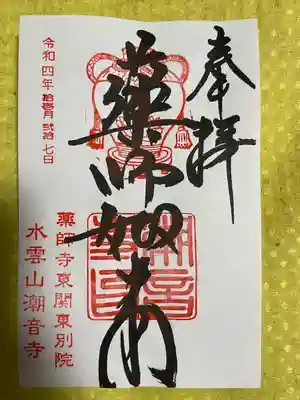 奉拝
薬師如来
令和四年 拾壱月 弐拾七日
薬師寺東関東別院
水雲山潮音寺